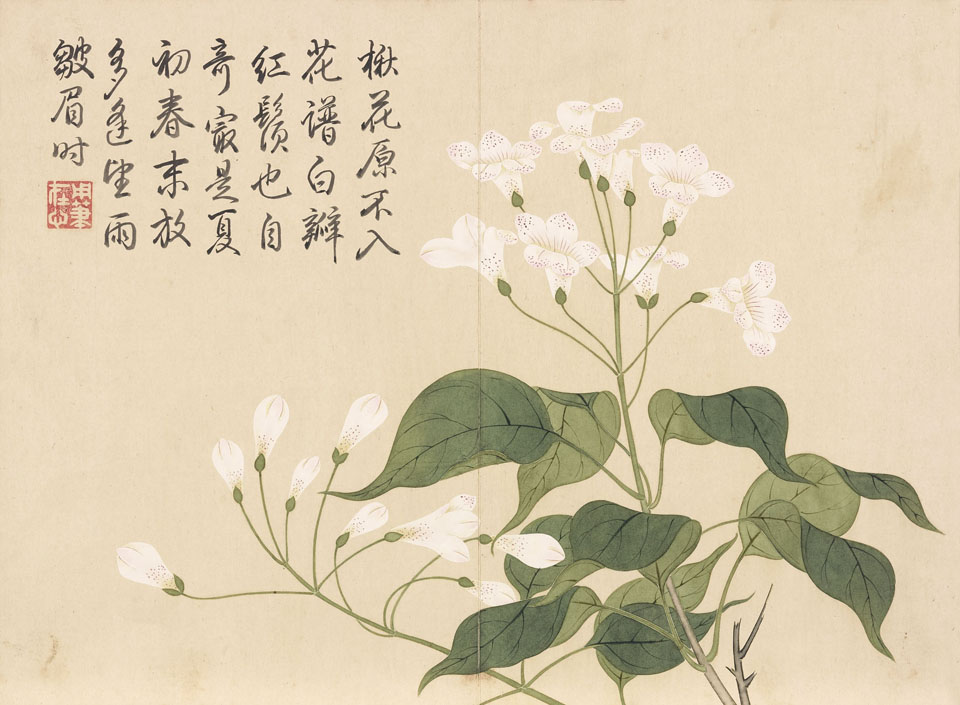 楸花原不入
花谱白辦
红鬚也自
奇寂是夏
初春末放
多逢望雨
皺眉时